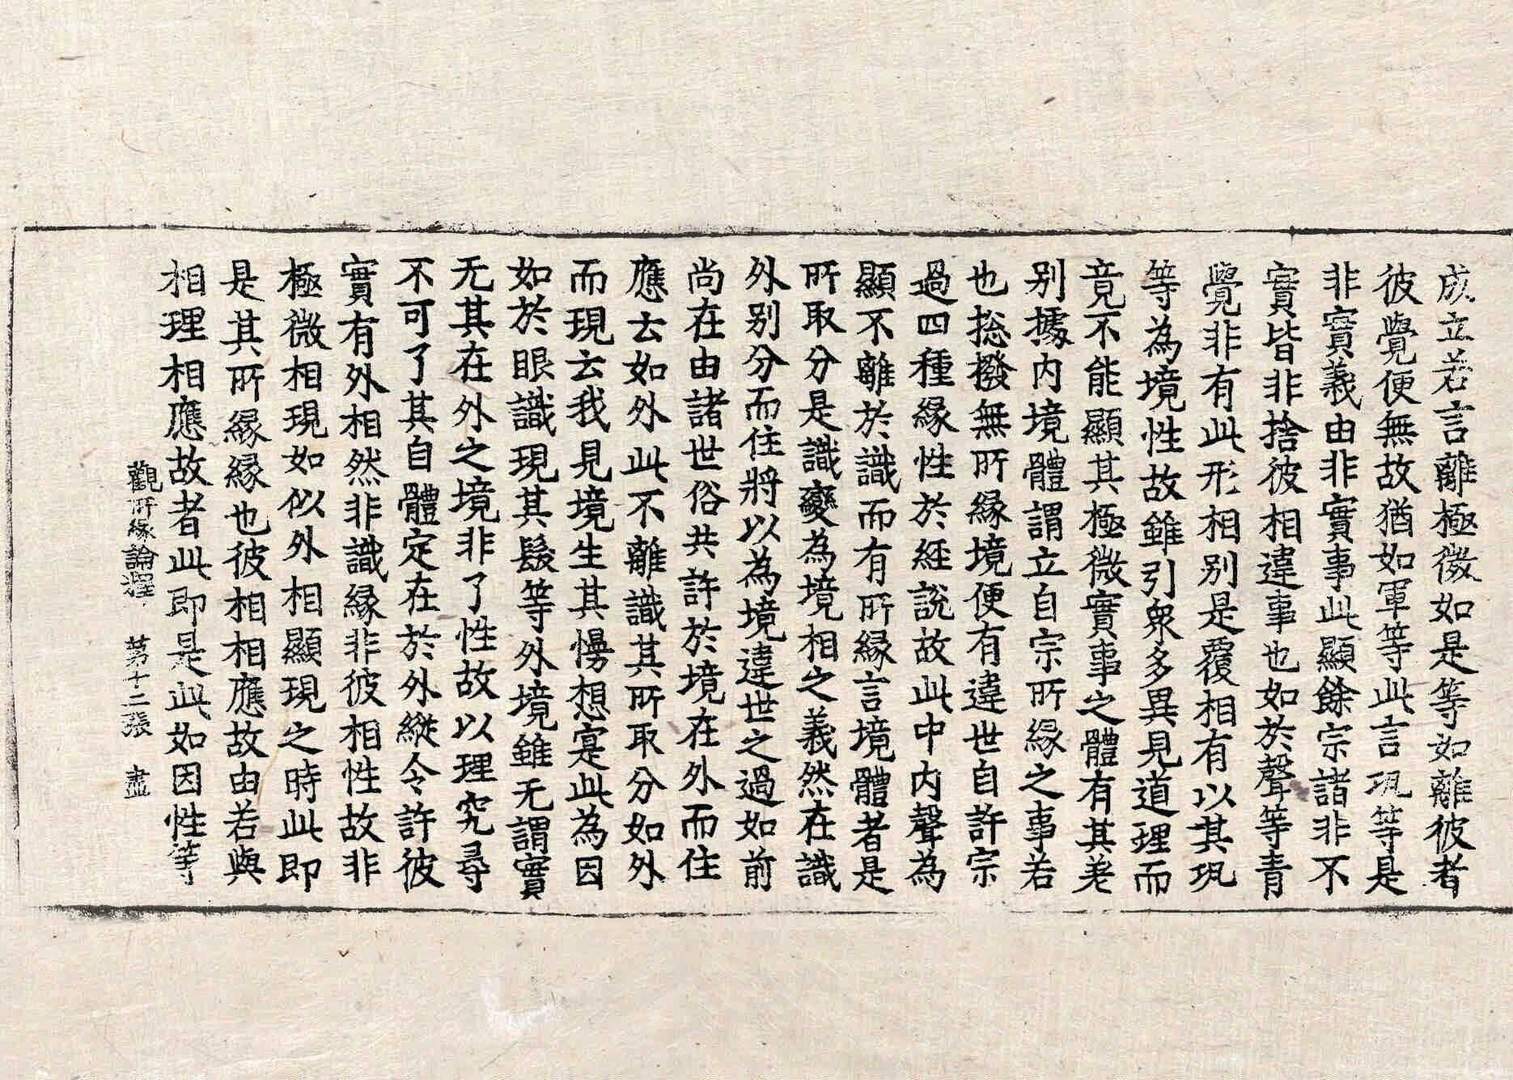 成立若言離極微如是等如離彼者
彼覺便無故猶如軍等此言瓨等是
非實義由非實事此顯餘宗諸非不
實皆非捨彼相違事也如於聲等青
覺非有此形相別是覆相有以其瓨
等為境性故雖引衆多異見道理而
竟不能顯其極微實事之體有其差
别據内境體謂立自宗所緣之事若
也捴撥無所緣境便有違世自許宗
過四種緣性於經說故此中内聲為
顯不離於識而有所緣言境體者是
所取分是識變為境相之義然在識
外别分而住將以為境違世之過如前
尚在由諸世俗共許於境在外而住
應去如外此不離識其所取分如外
而現去我見境生其慢想寔此為因
如於眼識現其髮等外境雖无謂實
无其在外之境非了性故以理究尋
不可了其自體定在於外縱令許彼
實有外相然非識緣非彼相性故非
極微相現如似外相顯現之時此即
是其所緣緣也彼相相應故由若與
相理相應故者此即是此如因性等
觀所緣論釋 第十二張 盡